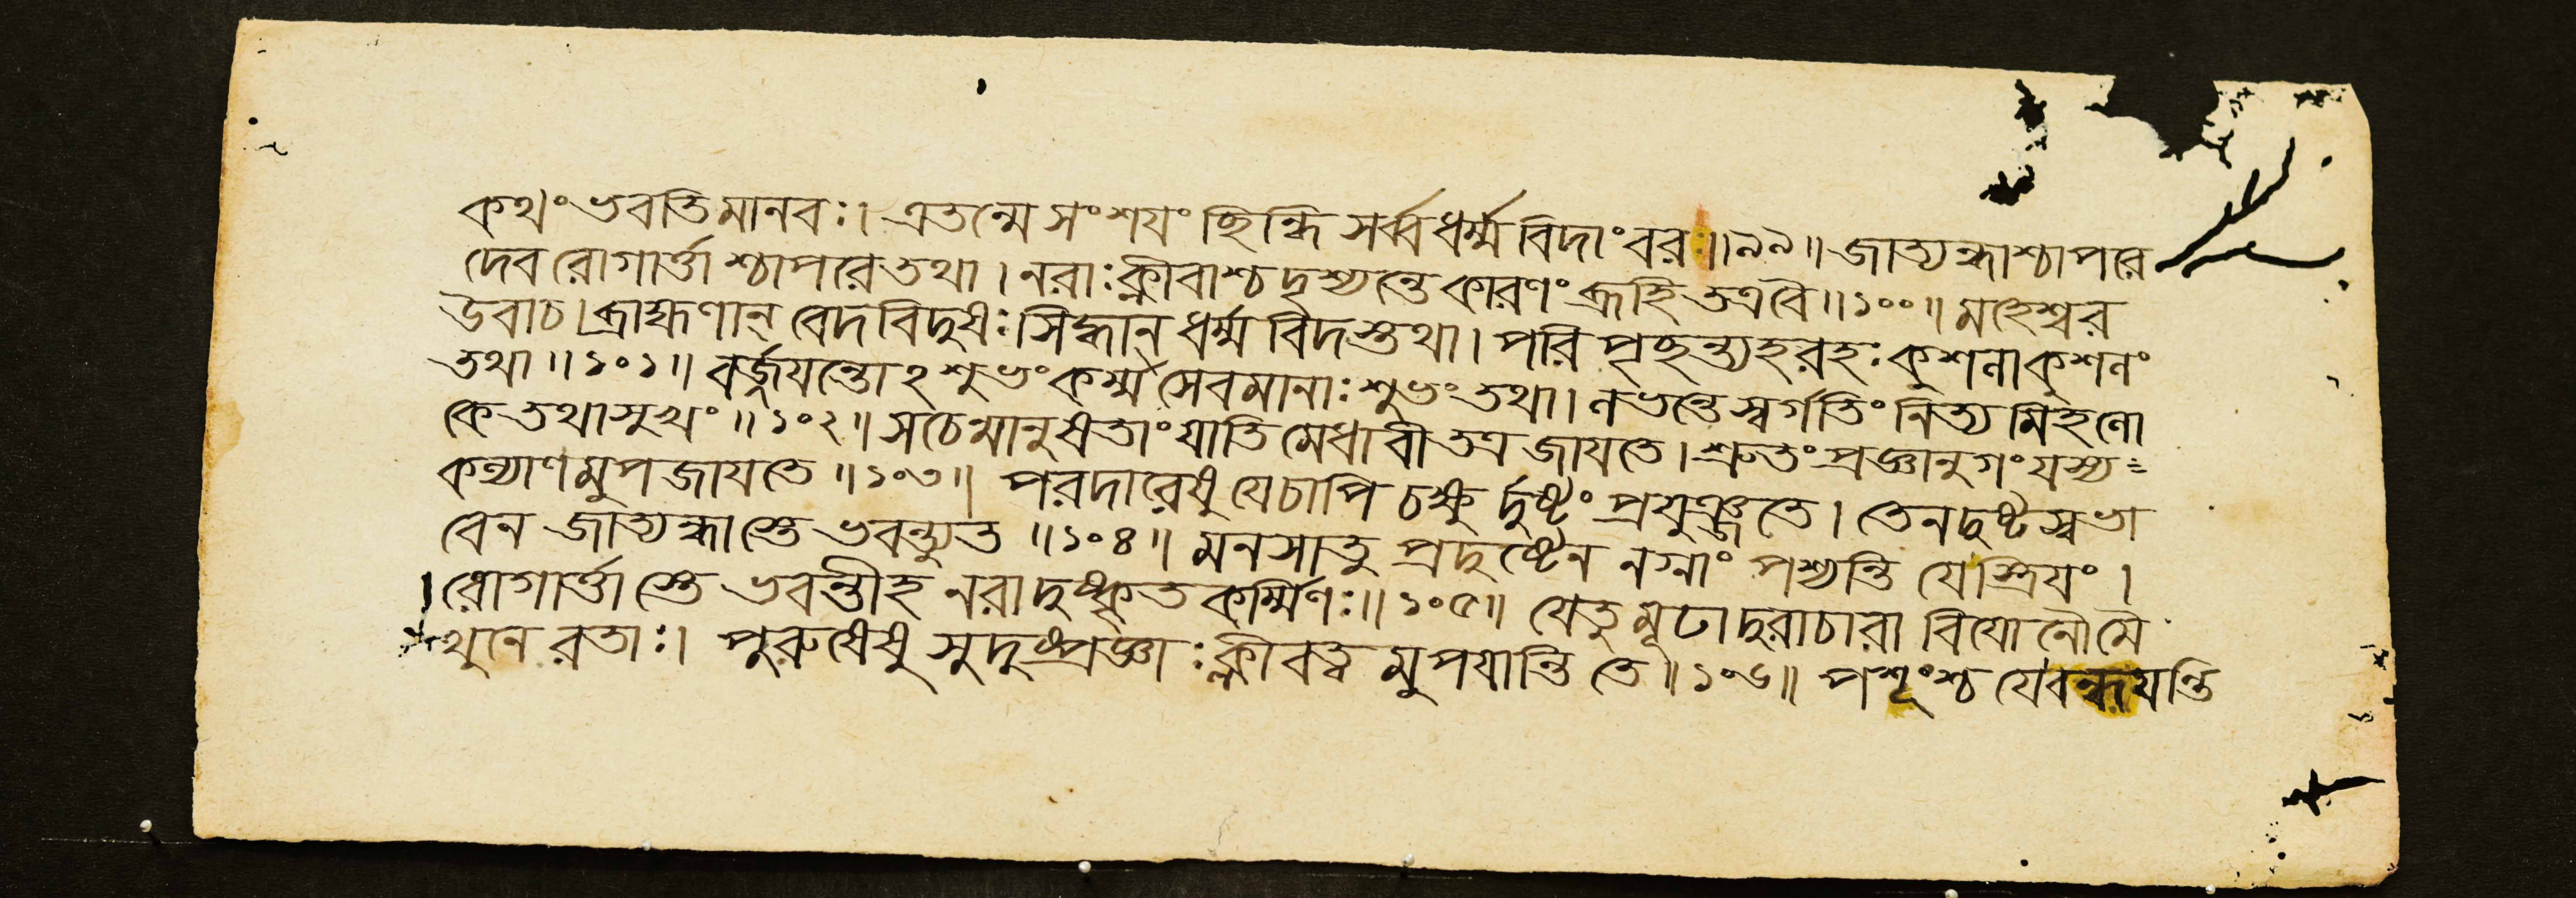 কথং ভবতি মানবঃ। এতন্মে সংশযং ছিন্ধি সর্ব্বধর্ম্মবিদাংবরঃ॥৯৯॥ জাত্যন্ধাশ্চাপরে
দেব রোগার্ত্তাশ্চাপরে তথা। নরাঃ ক্লীবাশ্চ দৃশ্যন্তে কারণং ব্রূহি তত্রবৈ॥১০০॥ মহেশ্বর
উবাচ। ব্রাহ্মণান্ বেদবিদুষঃ সিদ্ধান্ ধর্ম্মবিদস্তথা। পরিপৃচ্ছন্ত্যহরহঃ কুশলাকুশলং
তথা॥১০১॥ বর্জ্জযন্তোঽশুভং কর্ম্ম সেবমানাঃ শুভং তথা। লভন্তে স্বর্গতিং নিত্যমিহলো
কে তথা সুখং॥১০২॥ সচেমানুষতাং যাতি মেধাবী তত্র জাযতে। শ্রুতং প্রজ্ঞানুগং যস্য=
কল্যাণমুপজাযতে॥১০৩॥ পরদারেষু যেচাপি চক্ষুর্দুষ্টং প্রযুঞ্জতে। তেন দুষ্টস্বভা
বেন জাত্যন্ধাস্তে ভবন্ত্যুত॥১০৪॥ মনসাতু প্রদুষ্টেন নগ্নাং পশ্যন্তি যেস্ত্রিযং।
।রোগার্ত্তাস্তে ভবন্তীহ নরাদুষ্কৃতকর্ম্মিণঃ॥১০৫॥ যেতু মূঢাদুরাচারা বিযোনৌমৈ
থুনে রতাঃ। পুরুষেষু সুদুষ্প্রজ্ঞাঃ ক্লীবত্বমুপযান্তি তে॥১০৬॥ পশূংশ্চ যেবন্ধযন্তি